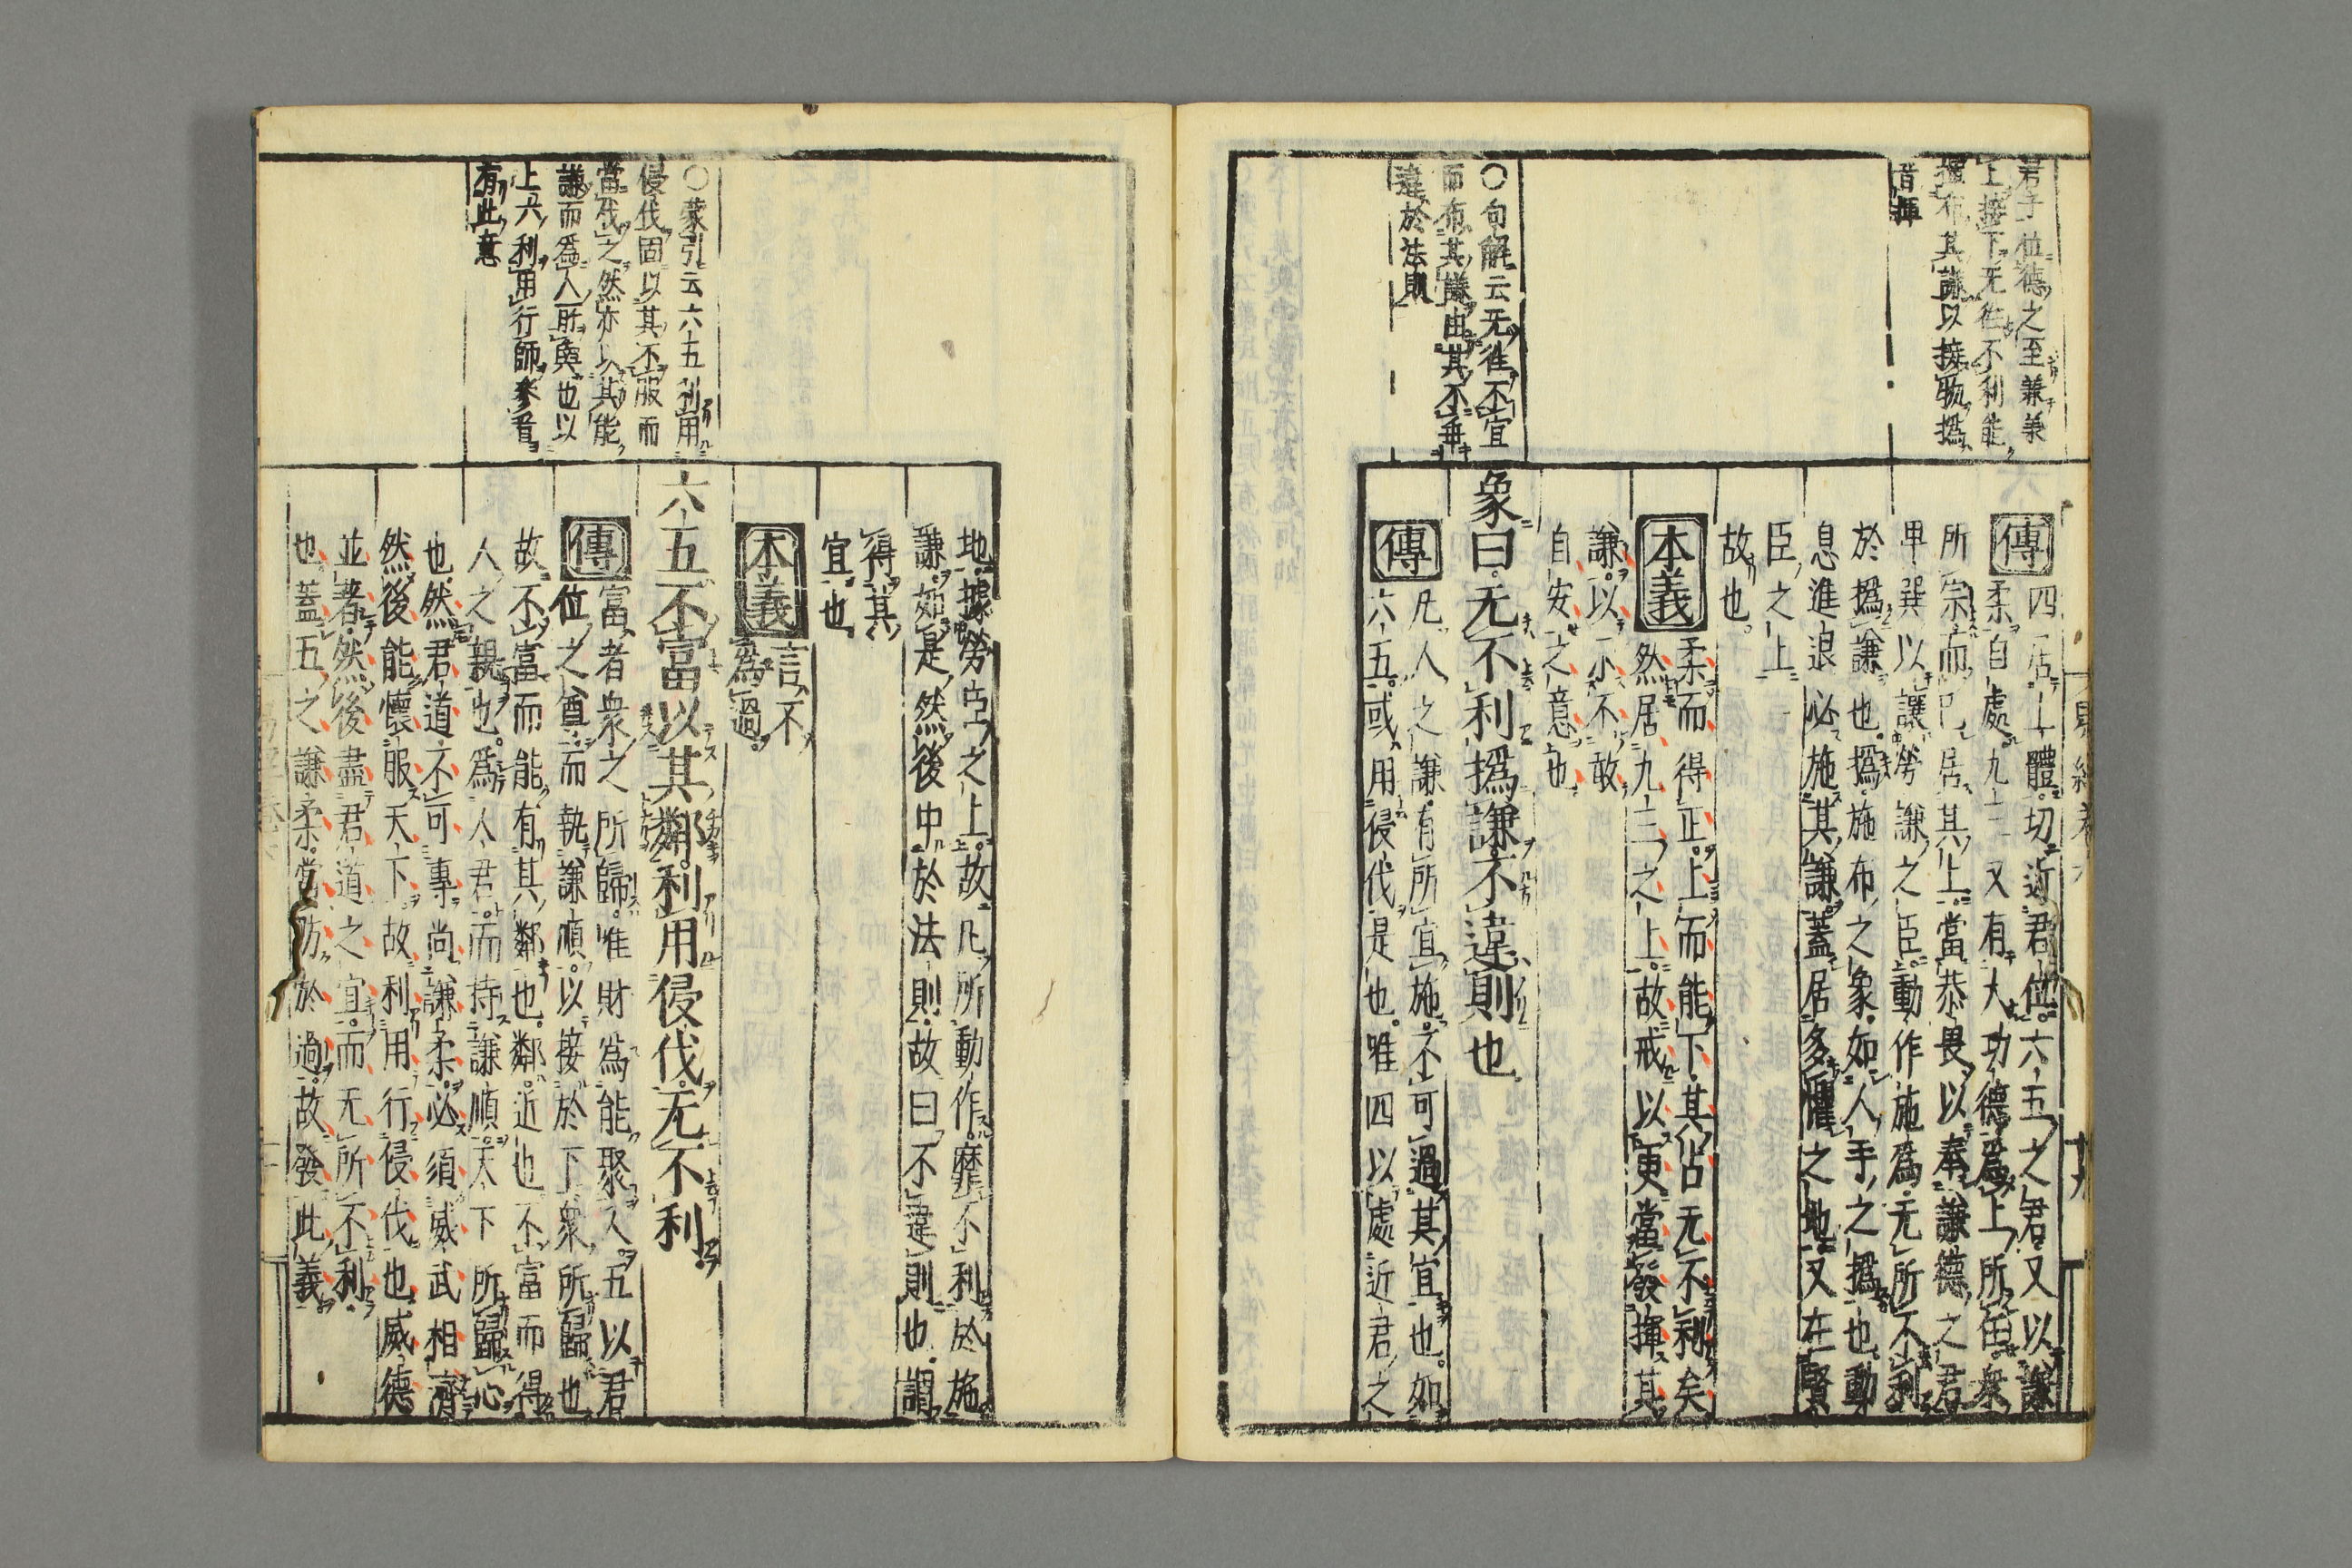 君子位德之至兼兼
上接下无往不利能
撝布其謙以接物撝
音揮
○句解云无往不宜
而布其謙由其不乖
違於法則
易經卷六
十九
傳 四居上體切近君位六五之君又以謙
柔自處九三又有大功德爲上所任衆
所宗而已居其上當恭畏以奉謙德之君
卑巽以讓勞謙之臣動作施爲无所不利
於撝謙也撝施布之象如人手之撝也動
息進退必施其謙蓋居多懼之地又在賢
臣之上
故也
本義 柔而得正上而能下其占无不利矣
然居九三之上故戒以更當發揮其
謙以示不敢
自安之意也
象曰无不利撝謙不違則也
傳 凡人之謙有所宜施不可過其宜也如
六五或用侵伐是也唯四以處近君之
○蒙引云六五利用
侵伐固以其不服而
當伐之然亦以其能
謙而爲人所與也以
上六利用行師參看
有此意
地據勞臣之上故凡所動作靡不利於施
謙如是然後中於法則故曰不違則也謂
得其
宜也
本義 言不
爲過
六五不富以其鄰利用侵伐无不利
傳 富者衆之所歸唯財爲能聚人五以君
位之尊而執謙順以接於下衆所歸也
故不富而能有其鄰也鄰近也不富而得
人之親也爲人君而持謙順天下所歸心
也然君道不可專尚謙柔必須威武相濟
然後能懷服天下故利用行侵伐也威德
並著然後盡君道之宜而无所不利
也蓋五之謙柔當防於過故發此義